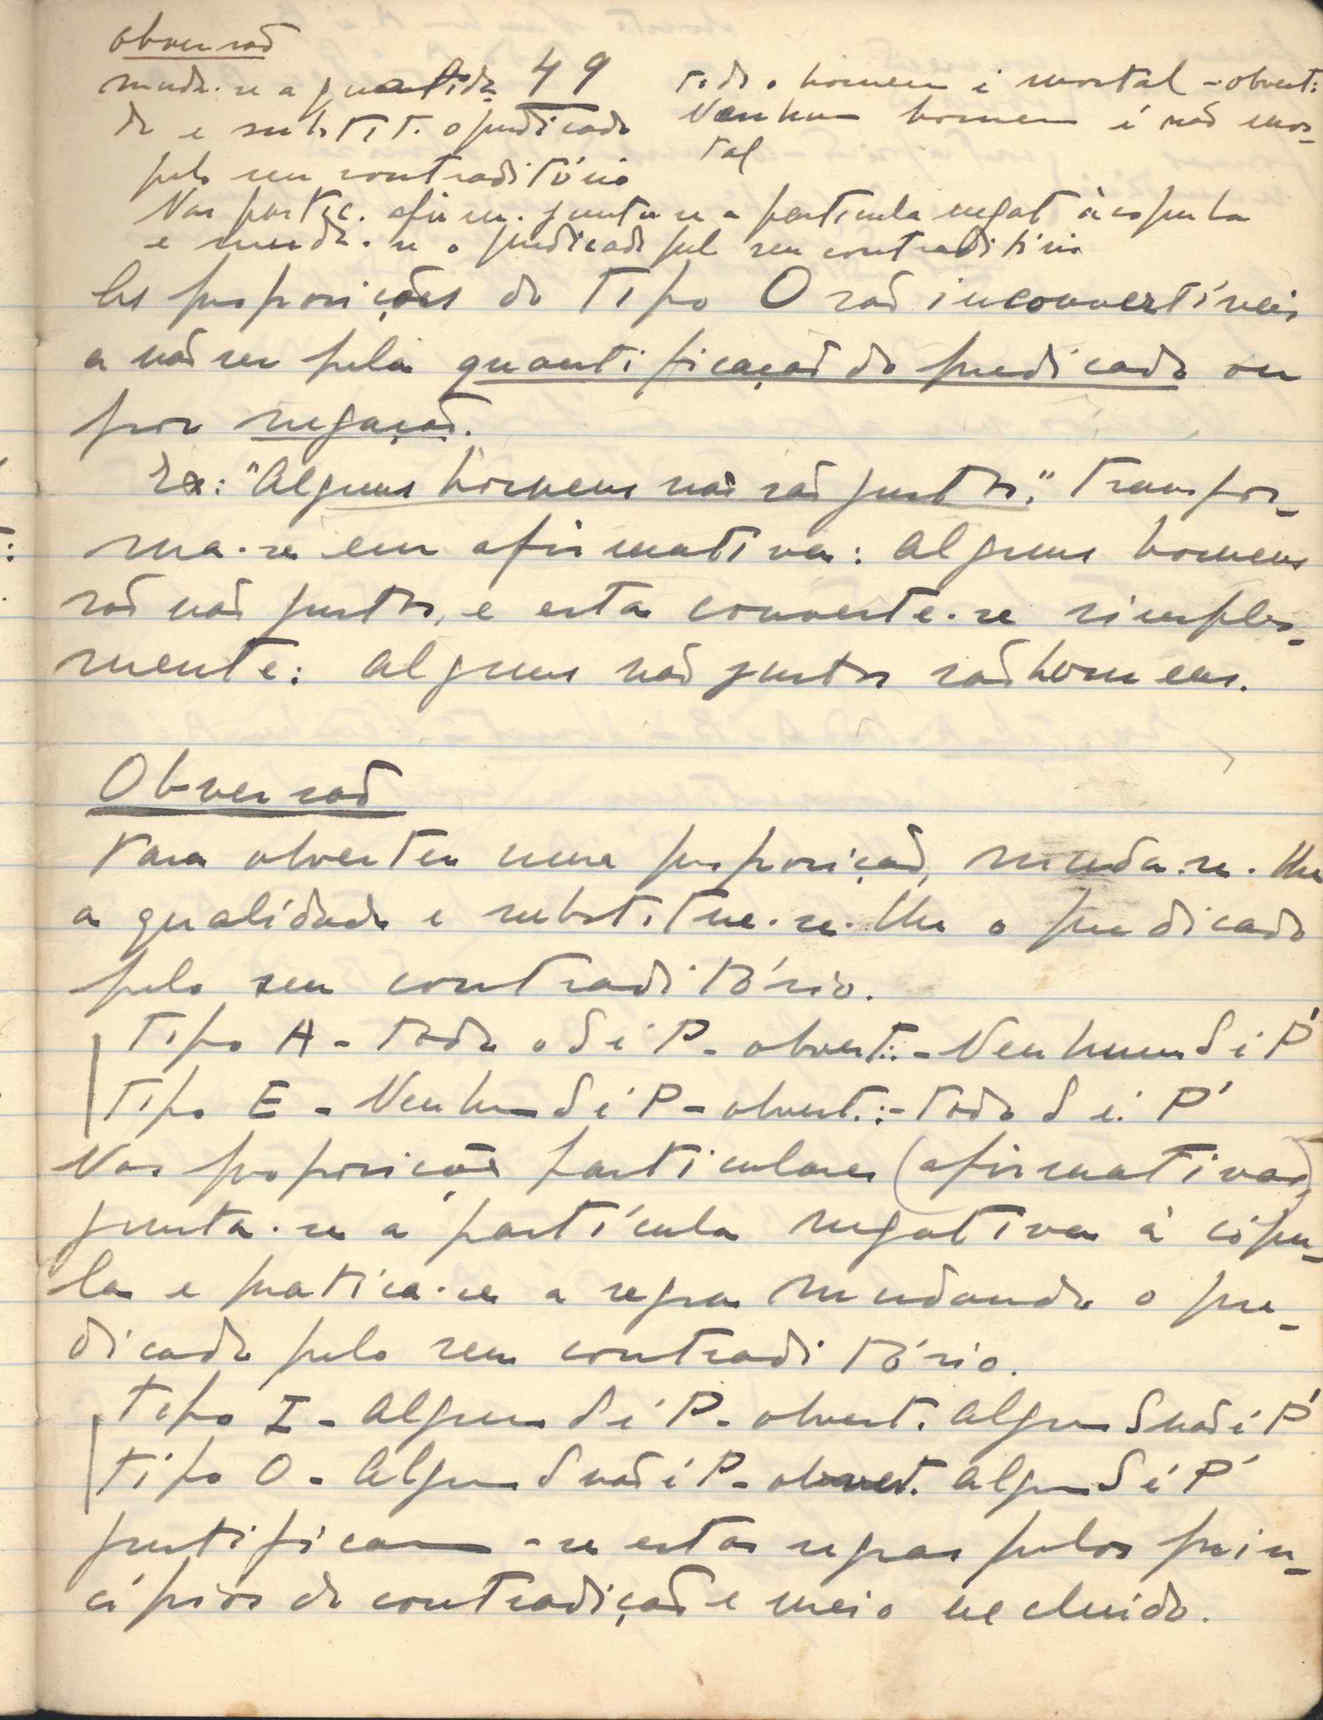 obversão
muda-se a qualida- 49
de e substit. o predicado
pelo seu contraditório
todo o homem é mortal - obvert:
Nenhum homem é não mor-
tal
Nas partic. afirm. junta-se a partícula negat à cópula
e muda-se o predicado pel seu contraditório
As proposições do tipo O são inconvertíveis
a não ser pela quantificação do predicado ou
por negação.
Ex: "Alguns homens não são justos." Transfor-
ma-se em afirmativa: Alguns homens
são não justos, e esta converte-se simples-
mente: Alguns não justos são homens.
Obversão
Para obverter uma proposição, muda-se-lhe
a qualidade e substitue-se-lhe o predicado
pelo seu contraditório.
Tipo A - Todo o S é P - obvert.: - Nenhum S é P'
Tipo E - Nenhum S é P - obvert.: - Todo S é P'
Nas proposições particulares (afirmativas)
junta-se a partícula negativa à cópu-
la e pratica-se a regra mudando o pre-
dicado pelo seu contraditório.
Tipo I - Algum S é P - obvert. Algum S não é P'
Tipo O - Algum S não é P - obvert. Algum S é P'
Justificam-se estas regras pelos prin-
cípios de contradição e meio excluido.